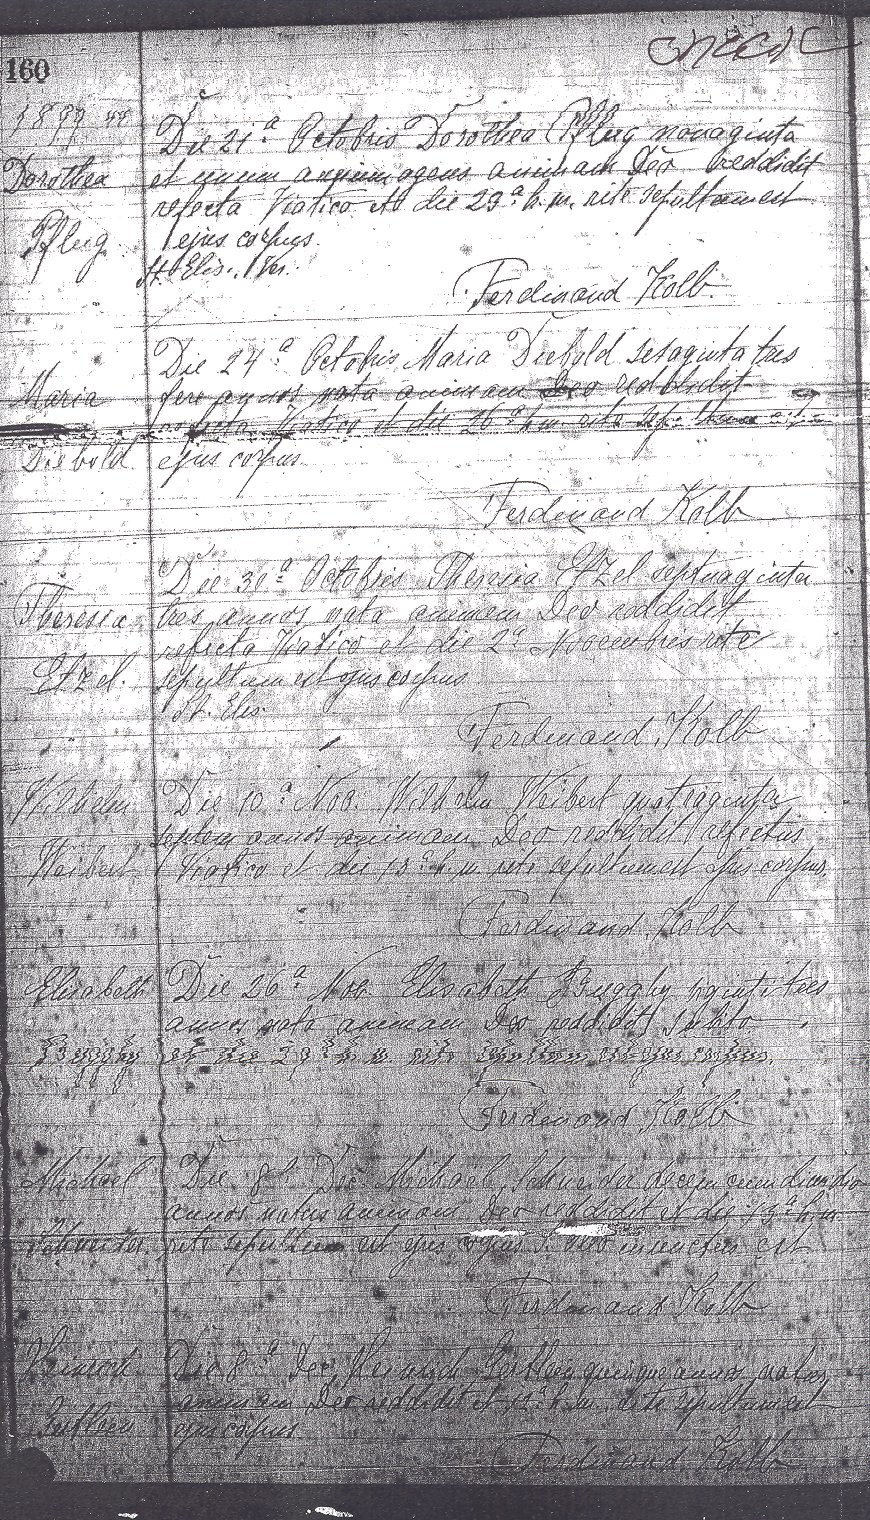 160
1899
Dorothea
Pflug
Die 21ª Octobris Dorothea Pflug nonaginta
et unum agens animam Deo reddidit
refecta Viatico et die 23ª h. m. rite sepultum est
ejus corpus.
St. Elis.
Ferdinand Kolb.
Maria
Diebold
Die 24ª Octobris Maria Diebold sexaginta tres
fere annos nata animam Deo reddidit
refecta Viatico et die 26ª h. m. rite
ejus corpus
Ferdinand Kolb
Theresia
Etzel.
Die 30ª Octobris Theresia Etzel septuaginta
tres annos nata animam Deo reddidit
refecta Viatico et die 2ª Novembris rite
sepultum est ejus corpus
St. Elis.
Ferdinand Kolb
Wilhelm
Weibert
Die 10ª Nov. Wilhelm Weibert quatraginta
septem annos animam Deo reddidit refectus
Viatico et die 13ª h. m. rite sepultum est ejus corpus.
Ferdinand Kolb
Elisabeth
Die 26ª Nov. Elisabeth viginti tres
annos nata animam Deo reddidit subito
et die 29ª h. m. rite sepultum est ejus corpus.
Ferdinand Kolb
Michael
Schneider
Die 8ª Dec. Michael Schneider decem cum dimidio
annos natus animam Deo reddidit et die 13ª h. m.
rite sepultum est ejus corpus
Ferdinand Kolb
Heinrich
Die 8ª Dec. Heinrich quinque annos natus
animam Deo reddidit et h. m. rite sepultum est
ejus corpus
Ferdinand Kolb